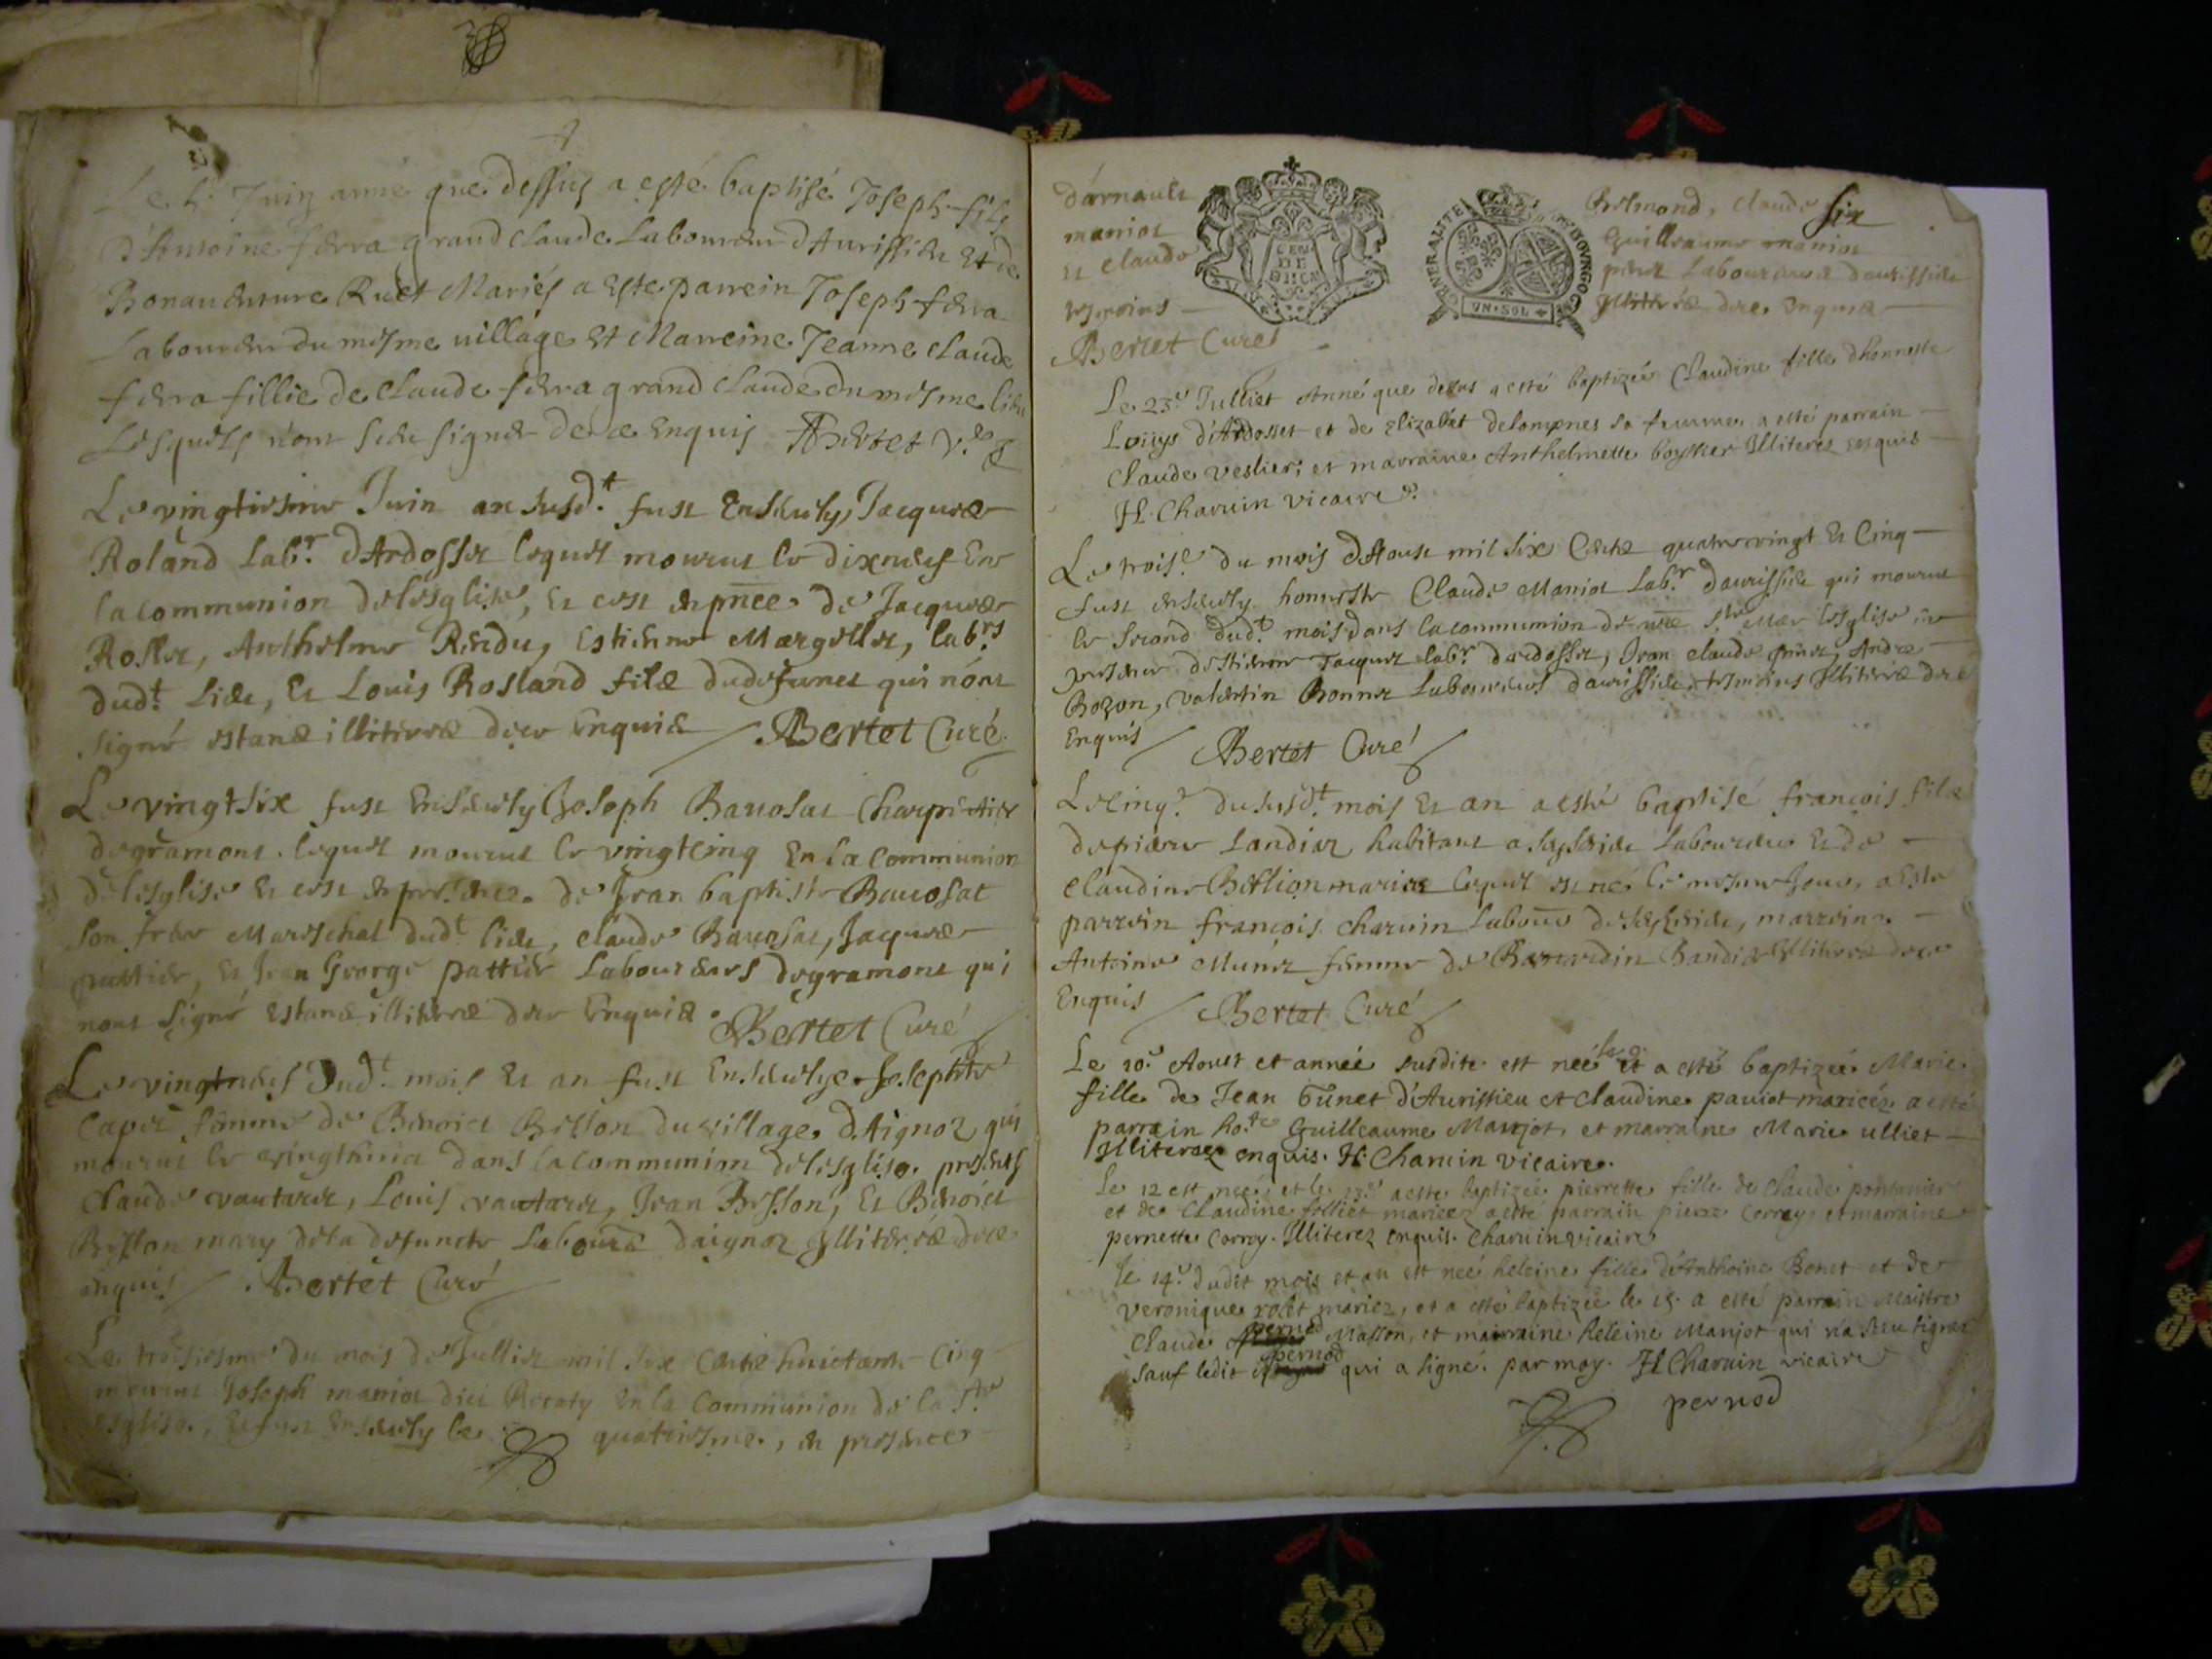 Juin anné que dessus a esté baptisé Joseph fils
d'Antoine ferra grand claude Laboureur d'Aurissieu et de
Bonauenture Ruet Mariés a este parrein Joseph ferra
Laboureur du mesme uillage et Marreine Jeanne claude
ferra fillie de claude ferra grand claude du mesme lieu
Lesquels n'ont sceu signer de ce enquis Bertet
Le vingtiesme Juin an susd.t fust ensevely Jacques
Roland lab.r d'Ardosset lequel mourut le dixneuf en
la communion de lesglise, et cest en pnce de Jacques
Rosset, Anthelme Rendu, Estienne Margellet, lab.rs
dud.t lieu, et Louis Rosland filz dudefunct qui nont
signé estans illiteres de ce enquis Bertet Curé
Le vingt six fust ensevely Joseph Bauosat charpentier
degramont lequel mourut le vingtcinq en la communion
de lesglise et cest en presence de Jean baptiste Bauosat
son frere mareschal dud.t lieu, claude Bauosat, Jacques
pattier, et Jean George pattier Laboureurs degramont qui
nont signé estans illiteres de ce enquis Bertet Curé
Le vingtneuf dud.t mois et an fust ensevelye Josephte
femme de Benoict Besson du village d'Aignoz qui
mourut le vingthuict dans la communion de lesglise. presents
claude vautaret, Louis vautaret, Jean Besson, et Benoict
Besson mary de la defuncte daignoz Illiteres de ce
enquis Bertet Curé
Le troisiesme du mois de Jullier mil six cents huictante cinq
mourut Joseph maniot dict en la communion de la s.te
esglise, et fust ensevely le quatriesme, en presence
d'arnault
maniot
et claude
tesmoins
Bertet Curé
GENERALITE BOURGOGNE
UN SOL
six
Belmond, claude
Guillaume maniot
Laboureurs daurissieu
de ce enquis
Le 23.e Julliet Anné que desus a esté baptizée Claudine fille d'honneste
Louys d'Ardosset et de Elizabet delompnes sa femme, a esté parrain
Claude veslier, et marraine Anthelmette Illiterez enquis
H. Charuin vicaire
Le trois.e du mois d'Aoust mil six cents quatrevingt et cinq
fust ensevely honneste Claude Maniot lab.r daurissieu qui mourut
le second dud.t mois dans la communion de nre s.te mere lesglise en
presence destienne Jacquet lab.r dardosset, Jean claude Andre
Bozon, valentin Bonnet Laboureurs daurissieu tesmoins Illiteres de ce
Enquis Bertet Curé
Le cinq.e du susd.t mois et an a esté baptisé françois filz
de pierre Landiaz habitant a Laboureur et de
claudine Billion mariez lequel est né le mesme jour, a este
parrein françois charuin marreine
Antoine Munet femme de Bernardin Illiteres de ce
Enquis Bertet Curé
Le 10.e Aoust et année susdite est neé et a esté baptizeé Marie
fille de Jean Tunet d'Aurissieu et claudine pauiot mariéz a esté
parrain ho.te Guilleaume Manjot, et marraine Marie ulliet
Illiterez enquis. H Charuin vicaire.
Le 12 est neé, et le 13.e a esté baptizeé pierrette fille de Claude pontanier
et de Claudine folliet mariez a esté parrain pierre Corroy et marraine
pernette Corroy. Illiterez enquis. Charuin vicaire
Le 14.e dudit mois et an est neé heleine fille d'Anthoine Bonet et de
veronique rolet mariez, et a esté baptizeé le 15. a esté parrain Maistre
Claude pernod Masson, et marraine heleine Manjot qui n'a sceu signer
sauf ledit pernod qui a signé. par moy. H Charuin vicaire
pernod